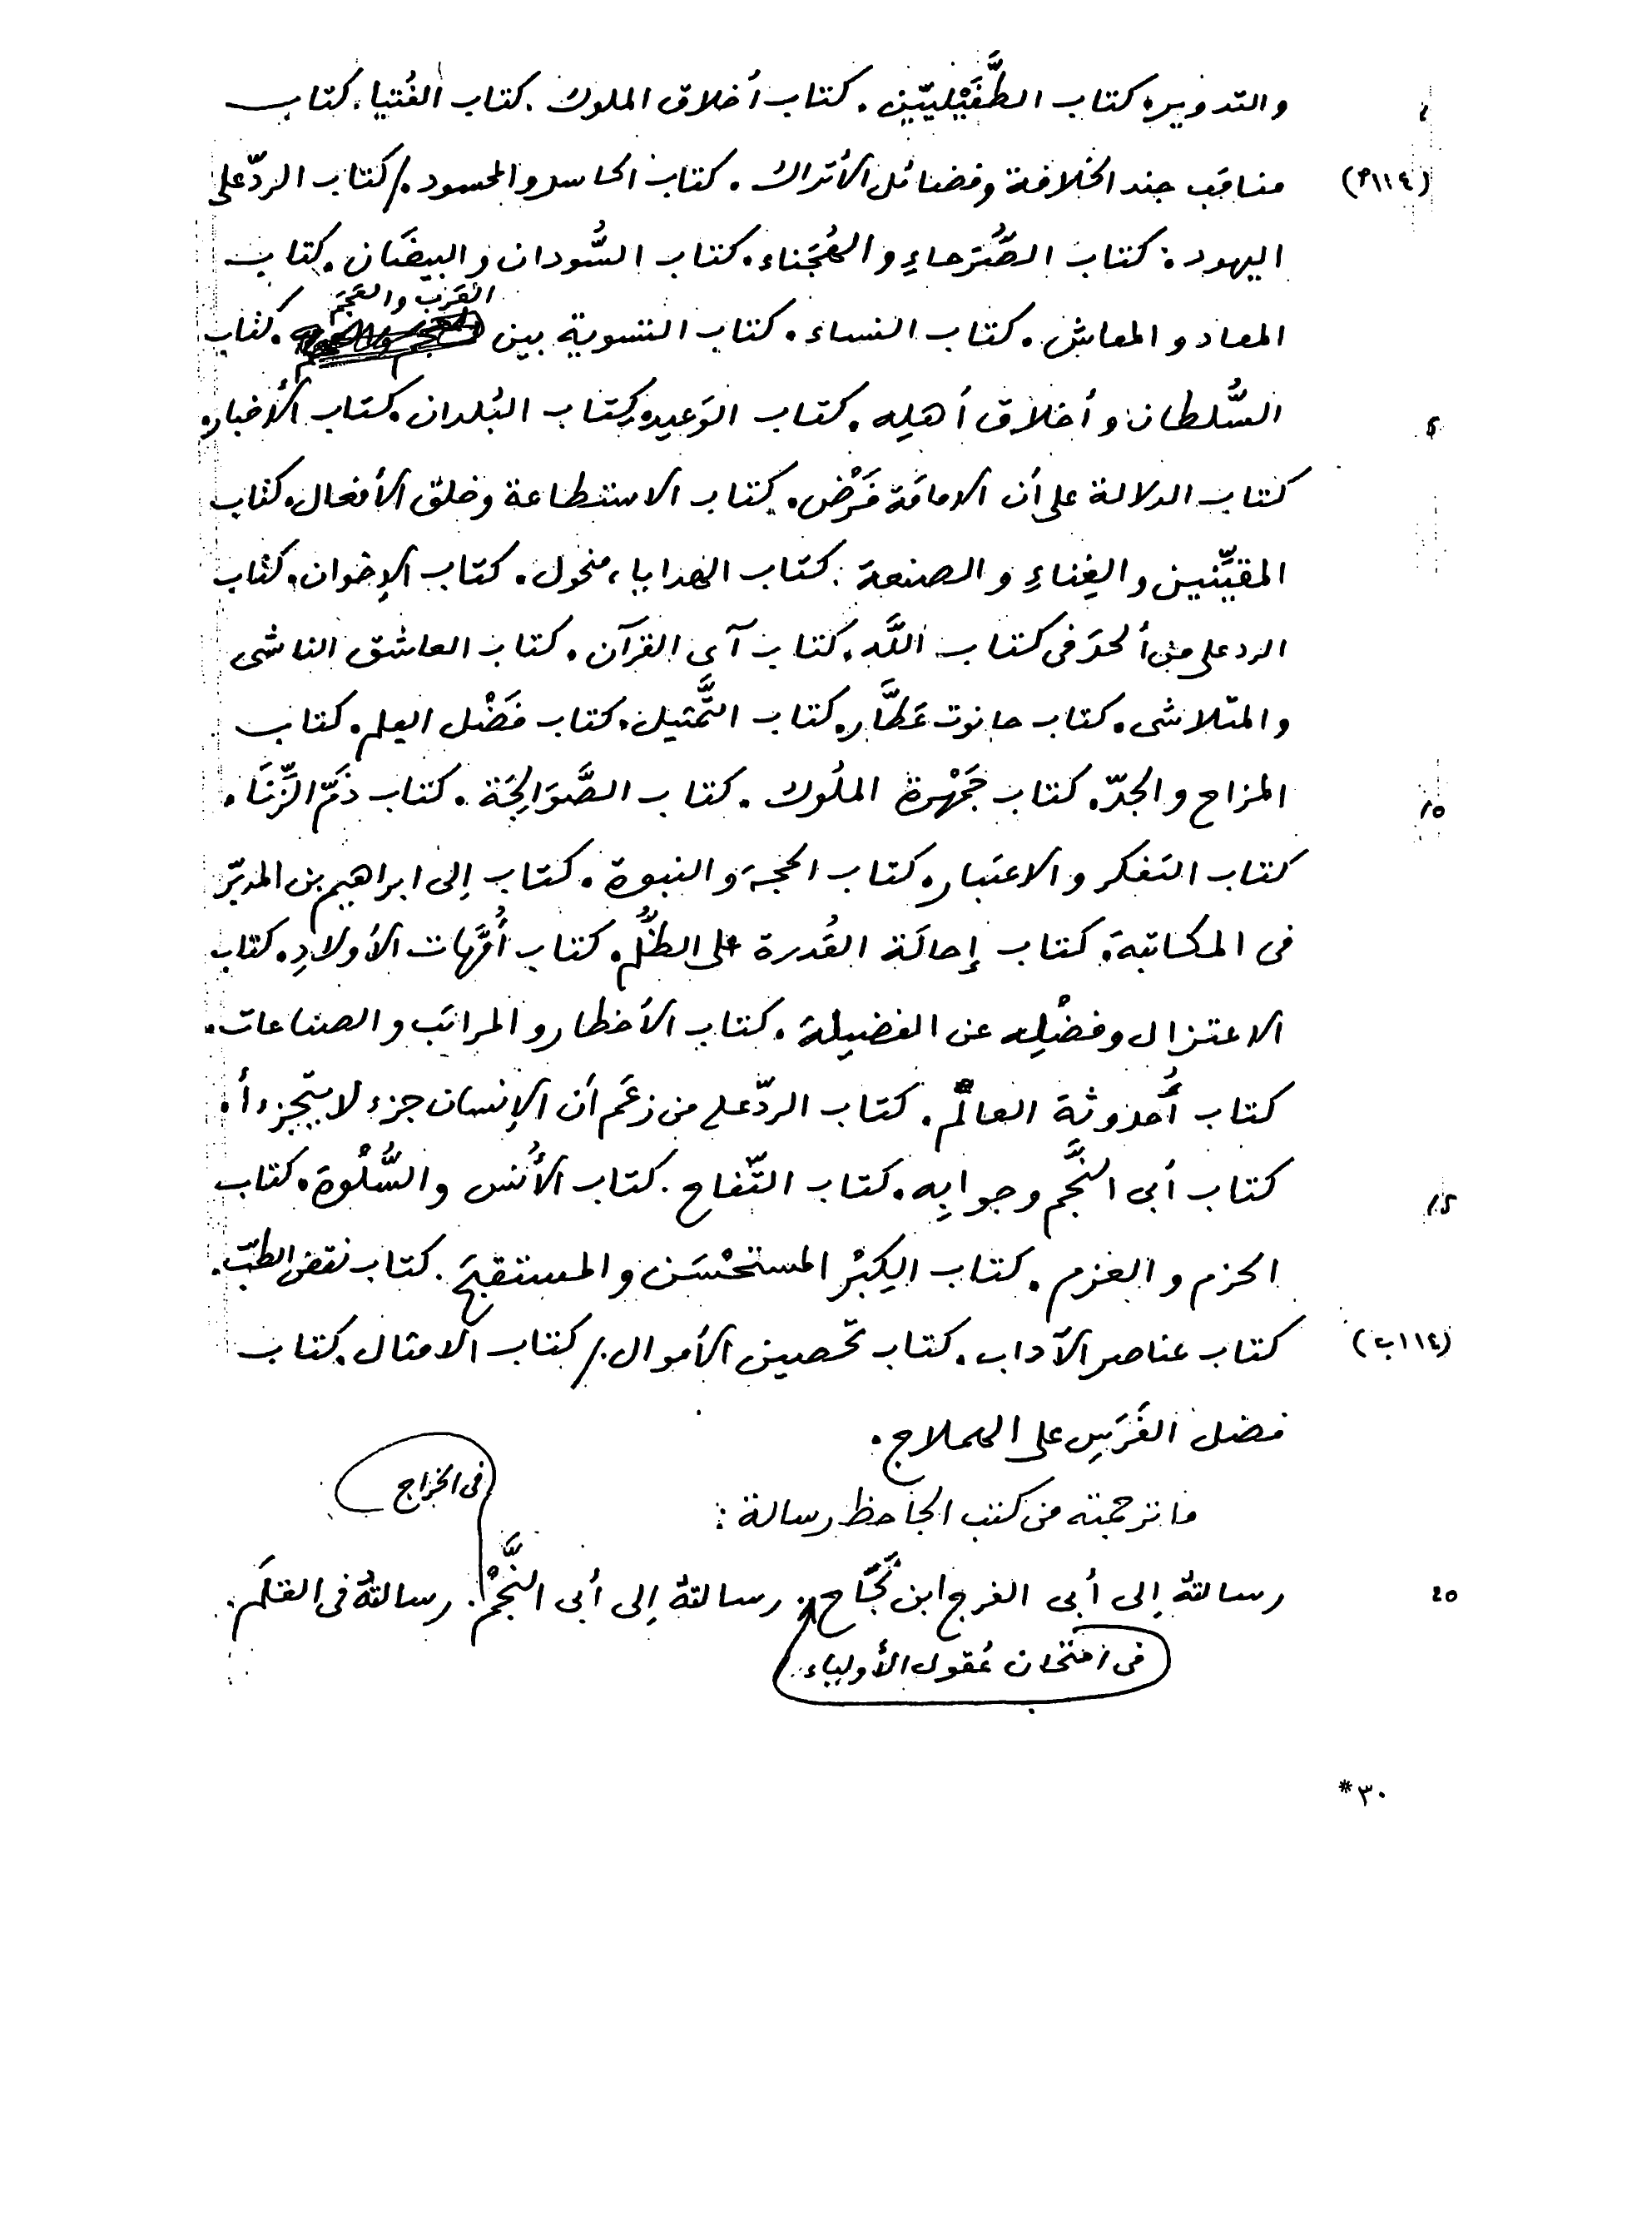 والتدوير. كتاب الطُّفَيْليّين. كتاب أخلاق الملوك. كتاب الفُتيا. كتاب
(١١٤م) مناقب جند الخلافة وفضائل الأتراك. كتاب الحاسد والمحسود./ كتاب الردّ على
اليهود. كتاب الصُّرَحاءِ والهُجَناء. كتاب السُّودان والبيضَان. كتاب
المعاد والمعاش. كتاب النساء. كتاب التسوية بين العَرَب والعَجَم. كتاب
5 السُّلطان وأخلاق أهلِه. كتاب الوَعيد. كتاب البُلدان. كتاب الأخبار.
كتاب الدلالة على أن الإمامَة فَرْض. كتاب الاستطاعة وخلق الأفعال. كتاب
المقيِّنين والغِناءِ والصنعة. كتاب الهدايا، منحول. كتاب الإخوان. كتاب
الرد على من ألحدَ فى كتاب اللَّه. كتاب آى القرآن. كتاب العاشق الناشى
والمتلاشى. كتاب حانوت عَطَّار. كتاب التَّمثيل. كتاب فَضْل العِلم. كتاب
10 المزاح والجدّ. كتاب جَمْهرة الملُوك. كتاب الصَّوَالِجَة. كتاب ذَمّ الزِّنَاء.
كتاب التفكر والاعتبار. كتاب الحجة والنبوة. كتاب إلى ابراهيم بن المدبّر
فى المكاتبة. كتاب إحالَة القُدرة على الظُّلم. كتاب أُمَّهات الأولادِ. كتاب
الاعتزال وفضْلِه عن الفضيلة. كتاب الأخطار والمراتب والصناعات.
كتاب أُحدوثة العالَم. كتاب الردّ على من زعَم أن الإنسان جزء لا يتجزءأ.
15 كتاب أبى النَّجم وجوابِه. كتاب التّفاح. كتاب الأُنس والسُّلْوة. كتاب
الحزم والعزم. كتاب الكِبْر المستحْسَن والمستقبح. كتاب نقض الطبّ.
(١١٤ب) كتاب عناصر الآداب. كتاب تحصين الأموال./ كتاب الامثال. كتاب
فضل الفَرَسِ على الهملاج.
ما ترجمته من كتب الجاحظ رسالة:
20 رسالتهُ إلى أبى الفرج ابن نَجّاح فى امتحان عُقول الأولياء. رسالتهُ إلى أبى النَّجْم فى الخراج. رسالتهُ فى القلَم.
٣٠*